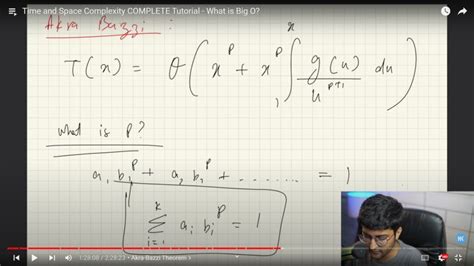 Time and Space Complexity COMPLETE Tutorial - What is Big O?
Akra Bazzi :
T(x) = Θ( x^p + x^p ∫_1^x g(u)/u^{p+1} du )
what is p?
a, b_i^p + a, b_i^p + ....... = 1
∑_{i=1}^k a_i b_i^p = 1
1:28:08 / 2:28:23 • Akra-Bazzi Theorem >